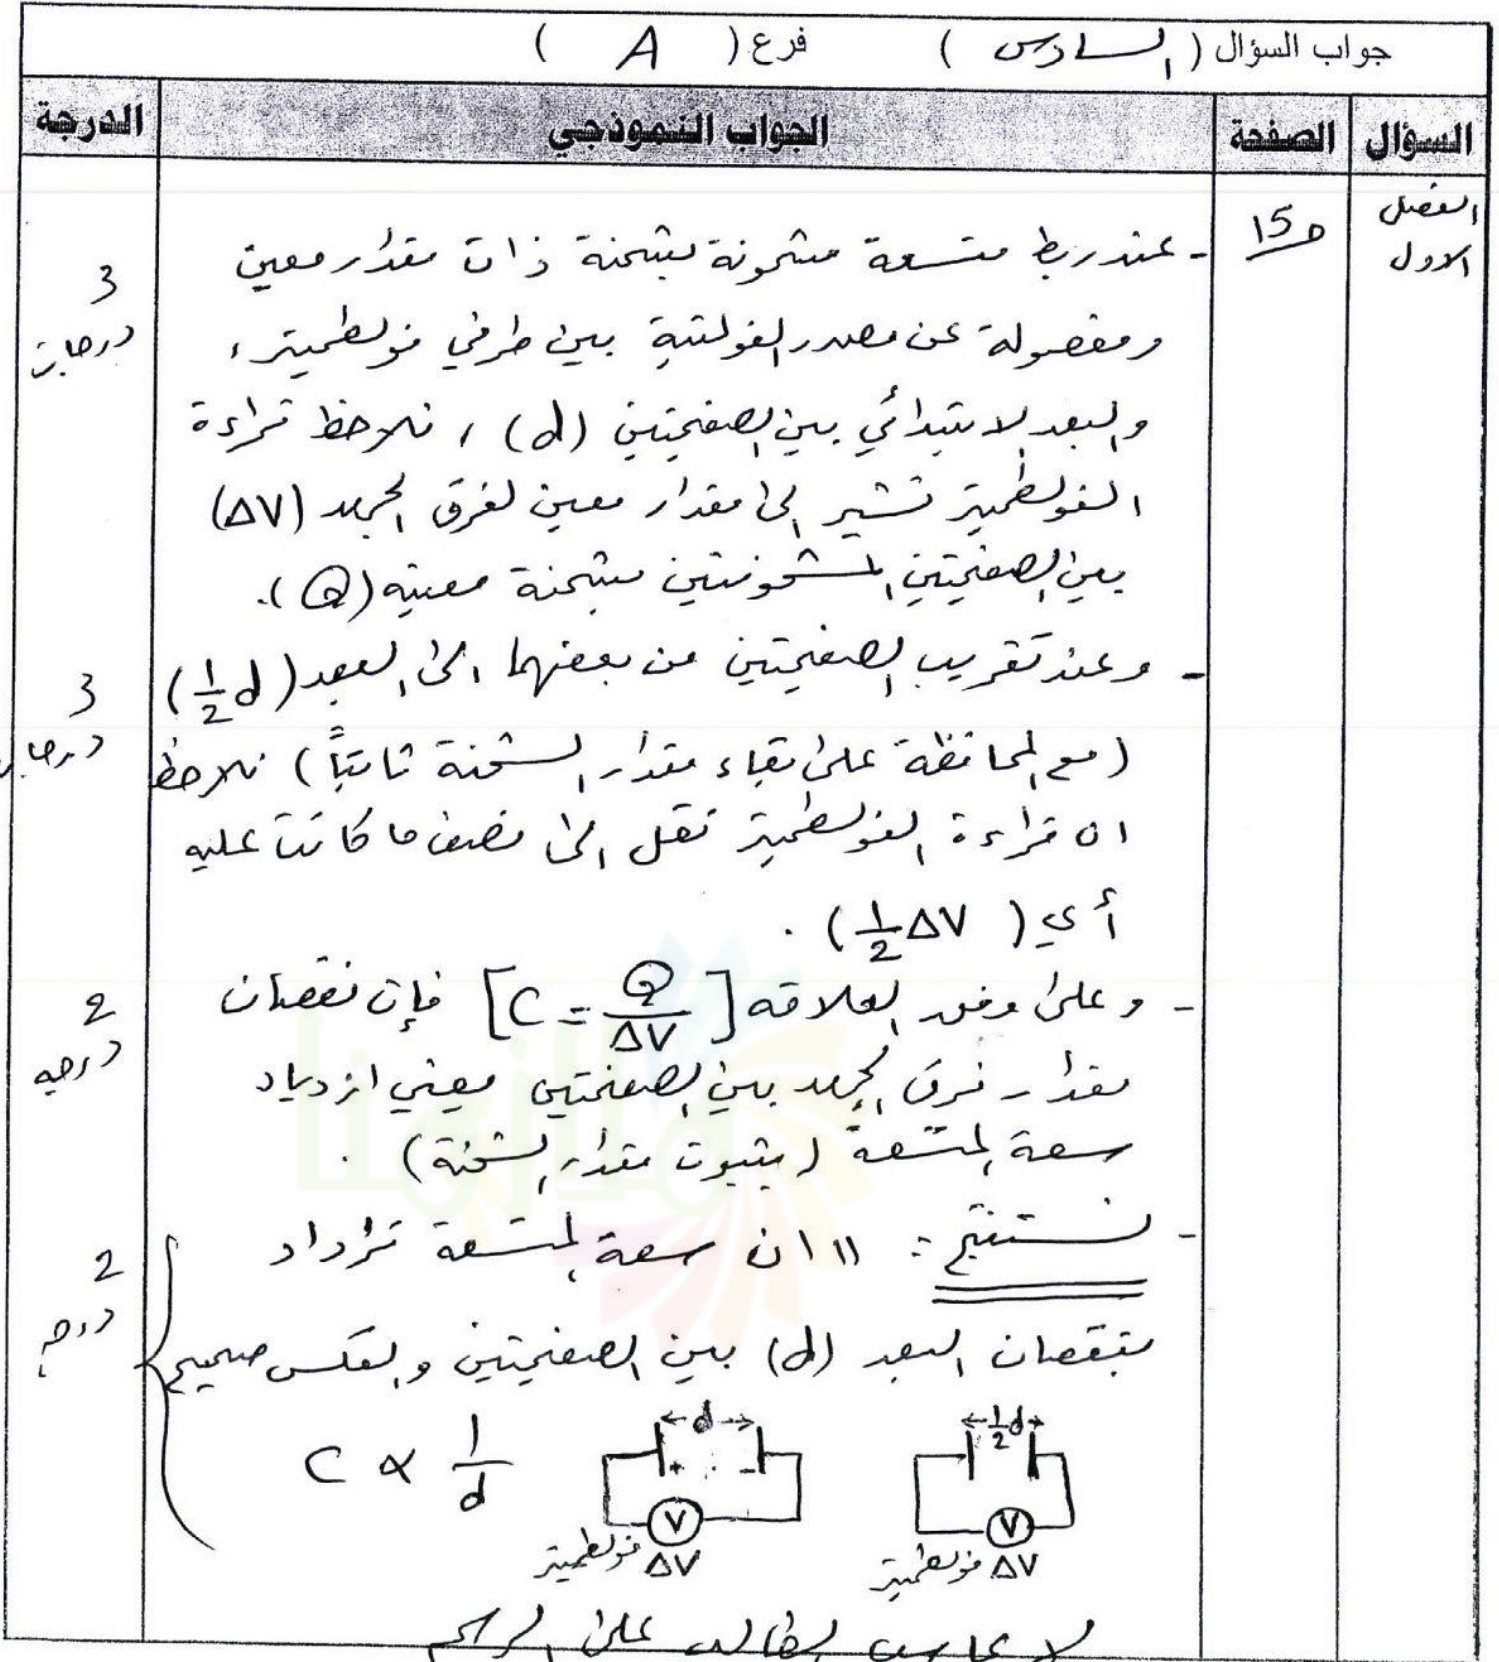 جواب السؤال ( السادس ) فرع ( A )
السؤال الصفحة الجواب النموذجي الدرجة
الفصل الاول
ص 15
- عند ربط متسعة مشحونة بشحنة ذات مقدار معين
3 درجات
ومفصولة عن مصدر الفولتية بين طرفي فولطميتر ،
والبعد الابتدائي بين الصفيحتين (d) ، نلاحظ قراءة
الفولطميتر تشير الى مقدار معين لفرق الجهد (ΔV)
بين الصفيحتين المشحونتين بشحنة معينه (Q).
- وعند تقريب الصفيحتين من بعضهما الى البعد (½d)
3 درجات
(مع المحافظة على بقاء مقدار الشحنة ثابتاً) نلاحظ
ان قراءة الفولطميتر تقل الى نصف ما كانت عليه
أي (½ΔV) .
- وعلى وفق العلاقه [C = Q/ΔV] فإن نقصان
2 درجه
مقدار فرق الجهد بين الصفيحتين يعني ازدياد
سعة المتسعة (بثبوت مقدار الشحنة) .
- نستنتج : " ان سعة المتسعة تزداد
2 درجة
بنقصان البعد (d) بين الصفيحتين والعكس صحيح
C ∝ 1/d
d
+ -
V
ΔV فولطميتر
½d
V
ΔV فولطميتر
لا يحاسب الطالب على الرسم